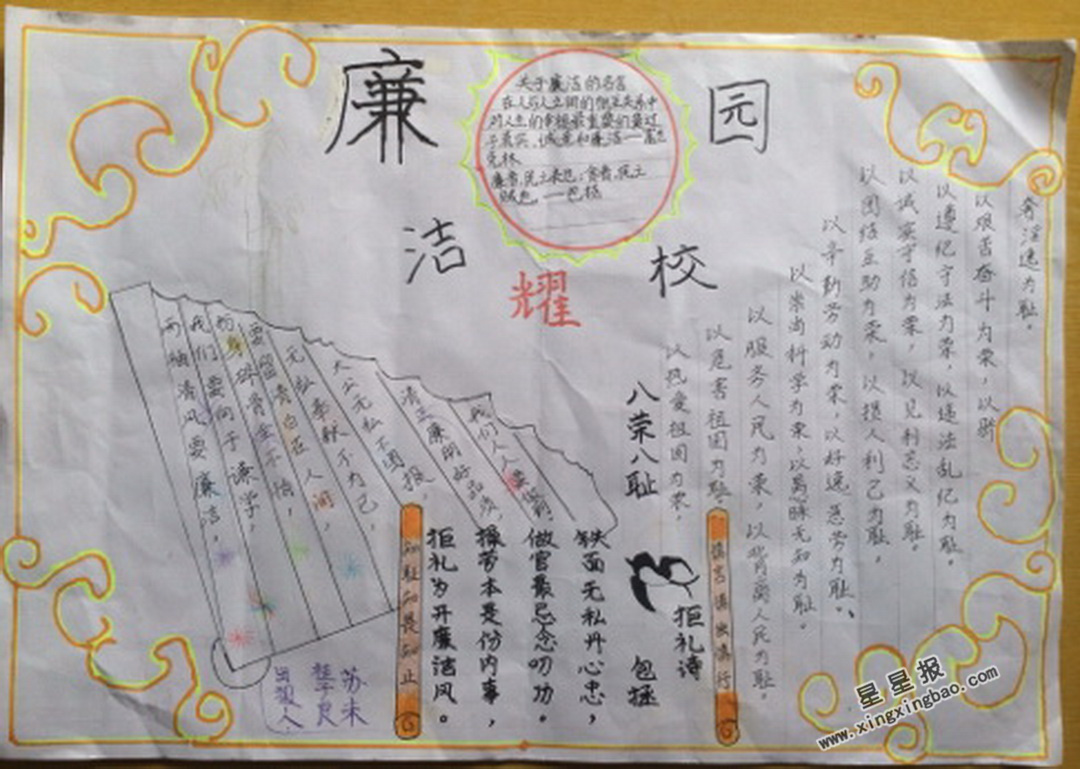 廉
洁
耀
校
园
关于廉洁的名言
在人与人之间的相互关系中
对人生的幸福最重要的莫过
于真实、诚意和廉洁——富兰
克林
廉者,民之表也;贪者,民之
贼也。——包拯
两袖清风要廉洁,
我们要向于谦学,
粉身碎骨全不怕,
要留青白在人间,
无私奉献不为己,
大公无私不图报,
清正廉明好品质,
我们人人要做到,
八荣八耻
以热爱祖国为荣,
以危害祖国为耻。
以服务人民为荣,以背离人民为耻。
以崇尚科学为荣,以愚昧无知为耻。
以辛勤劳动为荣,以好逸恶劳为耻、
以团结互助为荣,以损人利己为耻。
以诚实守信为荣,以见利忘义为耻。
以遵纪守法为荣,以违法乱纪为耻。
以艰苦奋斗为荣,以骄
奢淫逸为耻。
慎言慎慎行
拒礼诗
包拯
铁面无私丹心忠,
做官最忌念叨功。
操劳本是份内事,
拒礼为开廉洁风。
知耻知畏知止
苏未
出报人
星星报
www.xingxingbao.com